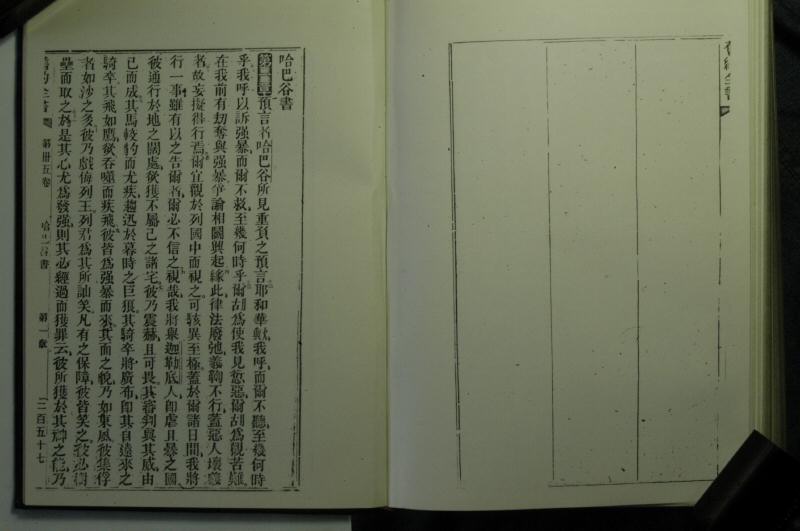 哈巴谷書
第一章預言者哈巴谷所見重負之預言耶和華歟我呼而爾不聽至幾何時
乎我呼以訴强暴而爾不救至幾何時乎爾胡爲使我見愆惡爾胡爲觀苦難
在我前有刼奪與强暴爭論相鬭興起緣此律法廢弛義鞫不行蓋惡人壞義
者故妄擬得行焉爾宜觀於列國中而視之可駭異至極蓋於爾諸日間我將
行一事雖有以之告爾者爾必不信之視哉我將舉迦勒底人即虐且暴之國
彼通行於地之闊處欲獲不屬己之諸宅彼乃震赫且可畏其審判與其威由
己而成其馬較豹而尤疾趨迅於暮時之巨狼其騎卒將廣布即其自遠來之
騎卒其飛如鷹欲吞噬而疾飛彼皆爲强暴而來其面之貌乃如東風彼集俘
者如沙之多彼乃戲侮列王列君爲其所訕笑凡有之保障彼皆笑之
壘而取之於是其心尤爲發强則其必經過而獲罪云彼所獲於其神之能乃
舊約全書 第卅五卷 哈巴谷書 第一章 二百五十七
舊約全書